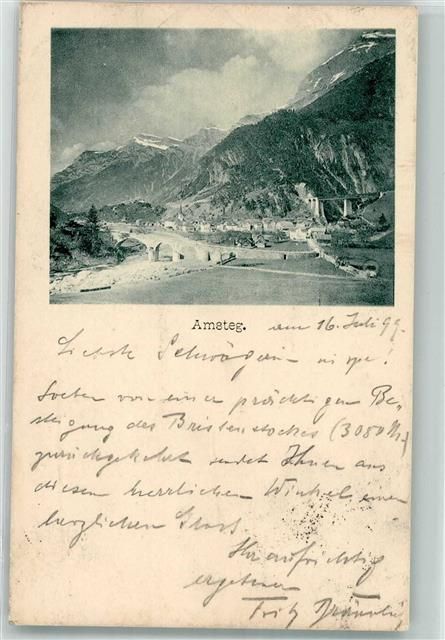 Amsteg.
am 16. Juli 99.
Liebste Schwägerin in spe!
Soeben von einer prächtigen Be-
steigung des Bristenstockes (3080 M.)
zurückgekehrt sendet Ihnen aus
diesem herrlichen Winkel einen
herzlichen Gruss
Ihr aufrichtig
ergebener
Fritz